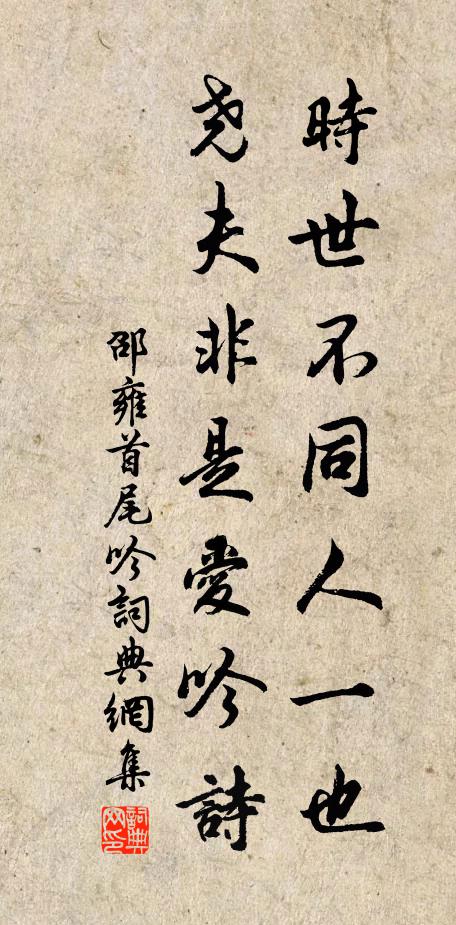 時世不同人一也
尧夫非是愛吟詩
邵雍首尾吟詞典網集
詞典网印